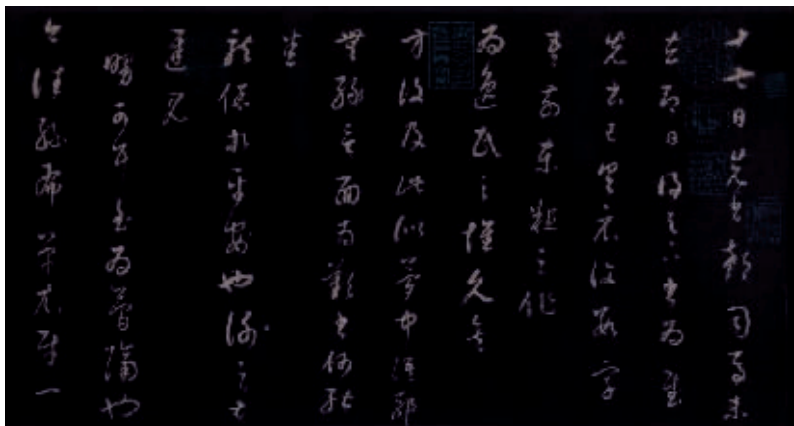 十七日先書郗司馬未
去即日得足下書為慰
先書以具示復數字
吾前東粗足作
為逸民之懷久矣
方復及此似夢中語耶
無緣言面為歎書何能
悉
龍保等平安也謝之甚
遲見
舅可耳至為簡隔也
今往絲布單衣財一